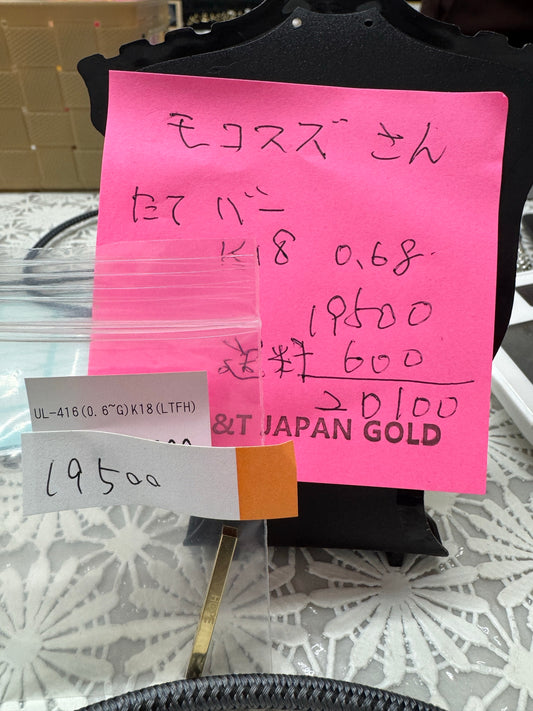 モコスズ さん
たて バー
K18 0.68.
19500
送料 600
20100
&T JAPAN GOLD
UL-416(0.6~G)K18(LTFH)
19500